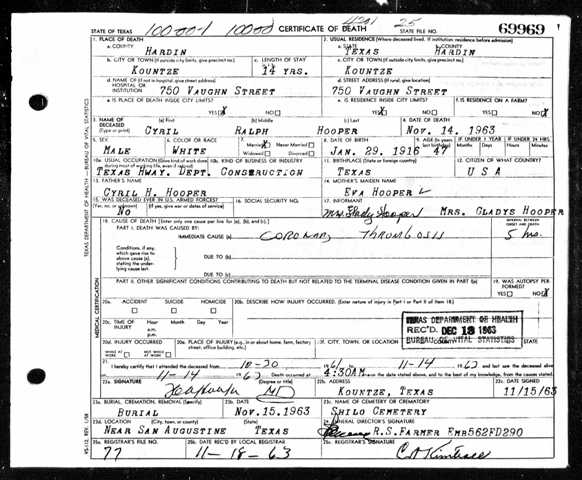 4201 25
STATE OF TEXAS 10000-1 10000 CERTIFICATE OF DEATH STATE FILE NO. 69969
1. PLACE OF DEATH 2. USUAL RESIDENCE (Where deceased lived. If institution: residence before admission)
a. COUNTY a. STATE b. COUNTY
HARDIN TEXAS HARDIN
b. CITY OR TOWN (If outside city limits, give precinct no.) c. LENGTH OF STAY c. CITY OR TOWN (If outside city limits, give precinct no.)
KOUNTZE 14 YRS. KOUNTZE
d. NAME OF (If not in hospital, give street address) HOSPITAL OR INSTITUTION d. STREET ADDRESS (If rural, give location)
750 VAUGHN STREET 750 VAUGHN STREET
e. IS PLACE OF DEATH INSIDE CITY LIMITS? e. IS RESIDENCE INSIDE CITY LIMITS? f. IS RESIDENCE ON A FARM?
YES X NO YES X NO YES NO X
3. NAME OF DECEASED (Type or print) (a) First (b) Middle (c) Last 4. DATE OF DEATH
CYRIL RALPH HOOPER NOV. 14. 1963
5. SEX 6. COLOR OR RACE 7. Married X Never Married Widowed Divorced 8. DATE OF BIRTH 9. AGE (In years last birthday) IF UNDER 1 YEAR IF UNDER 24 HRS.
Months Days Hours Min.
MALE WHITE JAN. 29. 1916 47
10a. USUAL OCCUPATION (Give kind of work done during most of working life, even if retired) 10b. KIND OF BUSINESS OR INDUSTRY 11. BIRTHPLACE (State or foreign country) 12. CITIZEN OF WHAT COUNTRY?
TEXAS HWAY. DEPT. CONSTRUCTION TEXAS USA
13. FATHER'S NAME 14. MOTHER'S MAIDEN NAME
CYRIL H. HOOPER EVA HOOPER
15. WAS DECEASED EVER IN U.S. ARMED FORCES? 16. SOCIAL SECURITY NO. 17. INFORMANT
(Yes, no, or unknown) (If yes, give war or dates of service)
NO Mrs. Gladys Hooper MRS. GLADYS HOOPER
18. CAUSE OF DEATH [Enter only one cause per line for (a), (b), and (c).] INTERVAL BETWEEN ONSET AND DEATH
PART I. DEATH WAS CAUSED BY:
IMMEDIATE CAUSE (a) CORONARY THROMBOSIS 5 hrs.
Conditions, if any, which gave rise to above cause (a), stating the underlying cause last.
DUE TO (b)
DUE TO (c)
PART II. OTHER SIGNIFICANT CONDITIONS CONTRIBUTING TO DEATH BUT NOT RELATED TO THE TERMINAL DISEASE CONDITION GIVEN IN PART I(a) 19. WAS AUTOPSY PERFORMED?
YES NO X
20a. ACCIDENT SUICIDE HOMICIDE 20b. DESCRIBE HOW INJURY OCCURRED. (Enter nature of injury in Part I or Part II of item 18.)
20c. TIME OF INJURY Hour Month Day Year
a.m.
p.m.
TEXAS DEPARTMENT OF HEALTH
REC'D. DEC 13 1963
BUREAU OF VITAL STATISTICS
20d. INJURY OCCURRED 20e. PLACE OF INJURY (e.g., in or about home, farm, factory, street, office building, etc.) 20f. CITY, TOWN, OR LOCATION COUNTY STATE
WHILE AT WORK NOT WHILE AT WORK
21. I hereby certify that I attended the deceased from 10-20 1961 11-14 1963
11-14 1963 Death occurred at 4:30AM on the date stated above, and to the best of my knowledge, from the causes stated.
22a. SIGNATURE (Degree or title) 22b. ADDRESS 22c. DATE SIGNED
MD KOUNTZE, TEXAS 11/15/63
23a. BURIAL, CREMATION, REMOVAL (Specify) 23b. DATE 23c. NAME OF CEMETERY OR CREMATORY
BURIAL NOV.15.1963 SHILO CEMETERY
23d. LOCATION (City, town, or county) (State) 24. FUNERAL DIRECTOR'S SIGNATURE
NEAR SAN AUGUSTINE TEXAS R.S. FARMER EMB562FD290
25a. REGISTRAR'S FILE NO. 25b. DATE REC'D BY LOCAL REGISTRAR 25c. REGISTRAR'S SIGNATURE
77 11-18-63
TEXAS DEPARTMENT OF HEALTH—BUREAU OF VITAL STATISTICS
MEDICAL CERTIFICATION